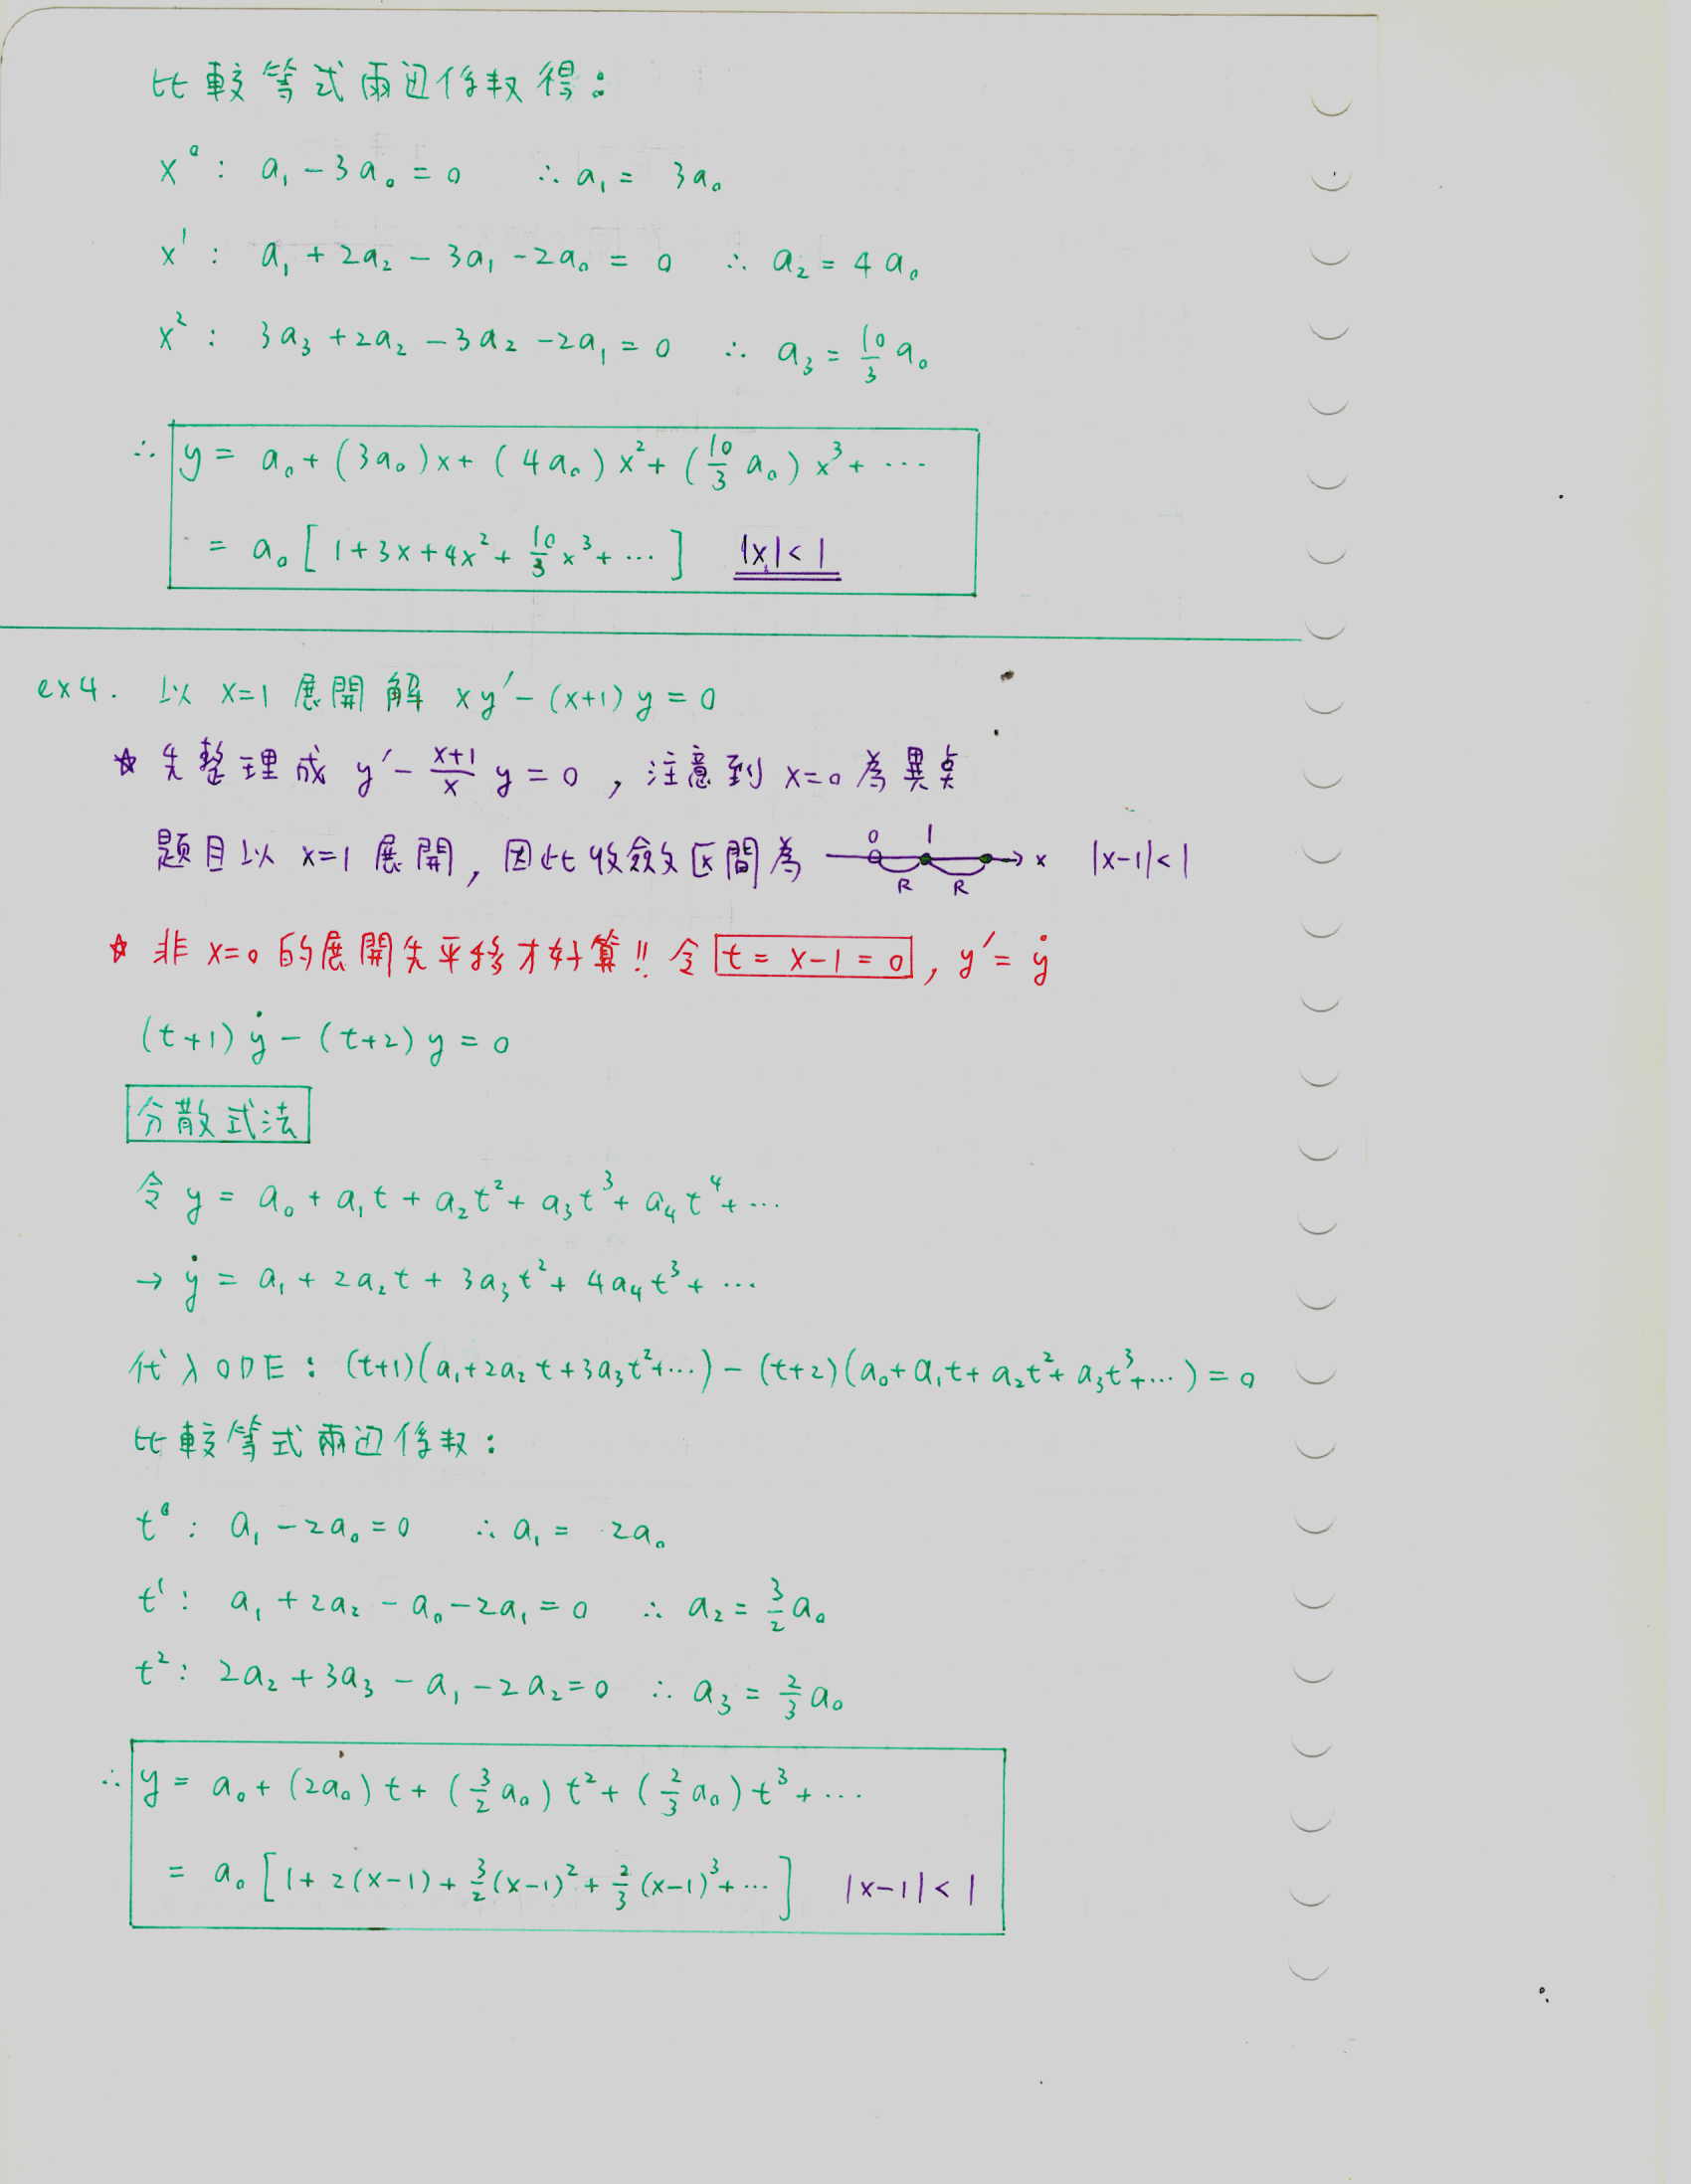 比較等式兩边係数得：
x⁰ : a₁ − 3a₀ = 0 ∴ a₁ = 3a₀
x¹ : a₁ + 2a₂ − 3a₁ − 2a₀ = 0 ∴ a₂ = 4a₀
x² : 3a₃ + 2a₂ − 3a₂ − 2a₁ = 0 ∴ a₃ = 10/3 a₀
∴ y = a₀ + (3a₀)x + (4a₀)x² + (10/3 a₀)x³ + ⋯
= a₀[1 + 3x + 4x² + 10/3 x³ + ⋯] |x| < 1
ex4. 以 x=1 展開解 xy′ − (x+1)y = 0
☆ 先整理成 y′ − (x+1)/x y = 0 , 注意到 x=0 為異点
題目以 x=1 展開, 因此收斂区間為 0 1 R R x |x−1| < 1
☆ 非 x=0 的展開先平移才好算!! 令 t = x−1 = 0 , y′ = ẏ
(t+1)ẏ − (t+2)y = 0
分散式法
令 y = a₀ + a₁t + a₂t² + a₃t³ + a₄t⁴ + ⋯
→ ẏ = a₁ + 2a₂t + 3a₃t² + 4a₄t³ + ⋯
代入ODE : (t+1)(a₁+2a₂t+3a₃t²+⋯) − (t+2)(a₀+a₁t+a₂t²+a₃t³+⋯) = 0
比較等式兩边係数 :
t⁰ : a₁ − 2a₀ = 0 ∴ a₁ = 2a₀
t¹ : a₁ + 2a₂ − a₀ − 2a₁ = 0 ∴ a₂ = 3/2 a₀
t² : 2a₂ + 3a₃ − a₁ − 2a₂ = 0 ∴ a₃ = 2/3 a₀
∴ y = a₀ + (2a₀)t + (3/2 a₀)t² + (2/3 a₀)t³ + ⋯
= a₀[1 + 2(x−1) + 3/2(x−1)² + 2/3(x−1)³ + ⋯] |x−1| < 1